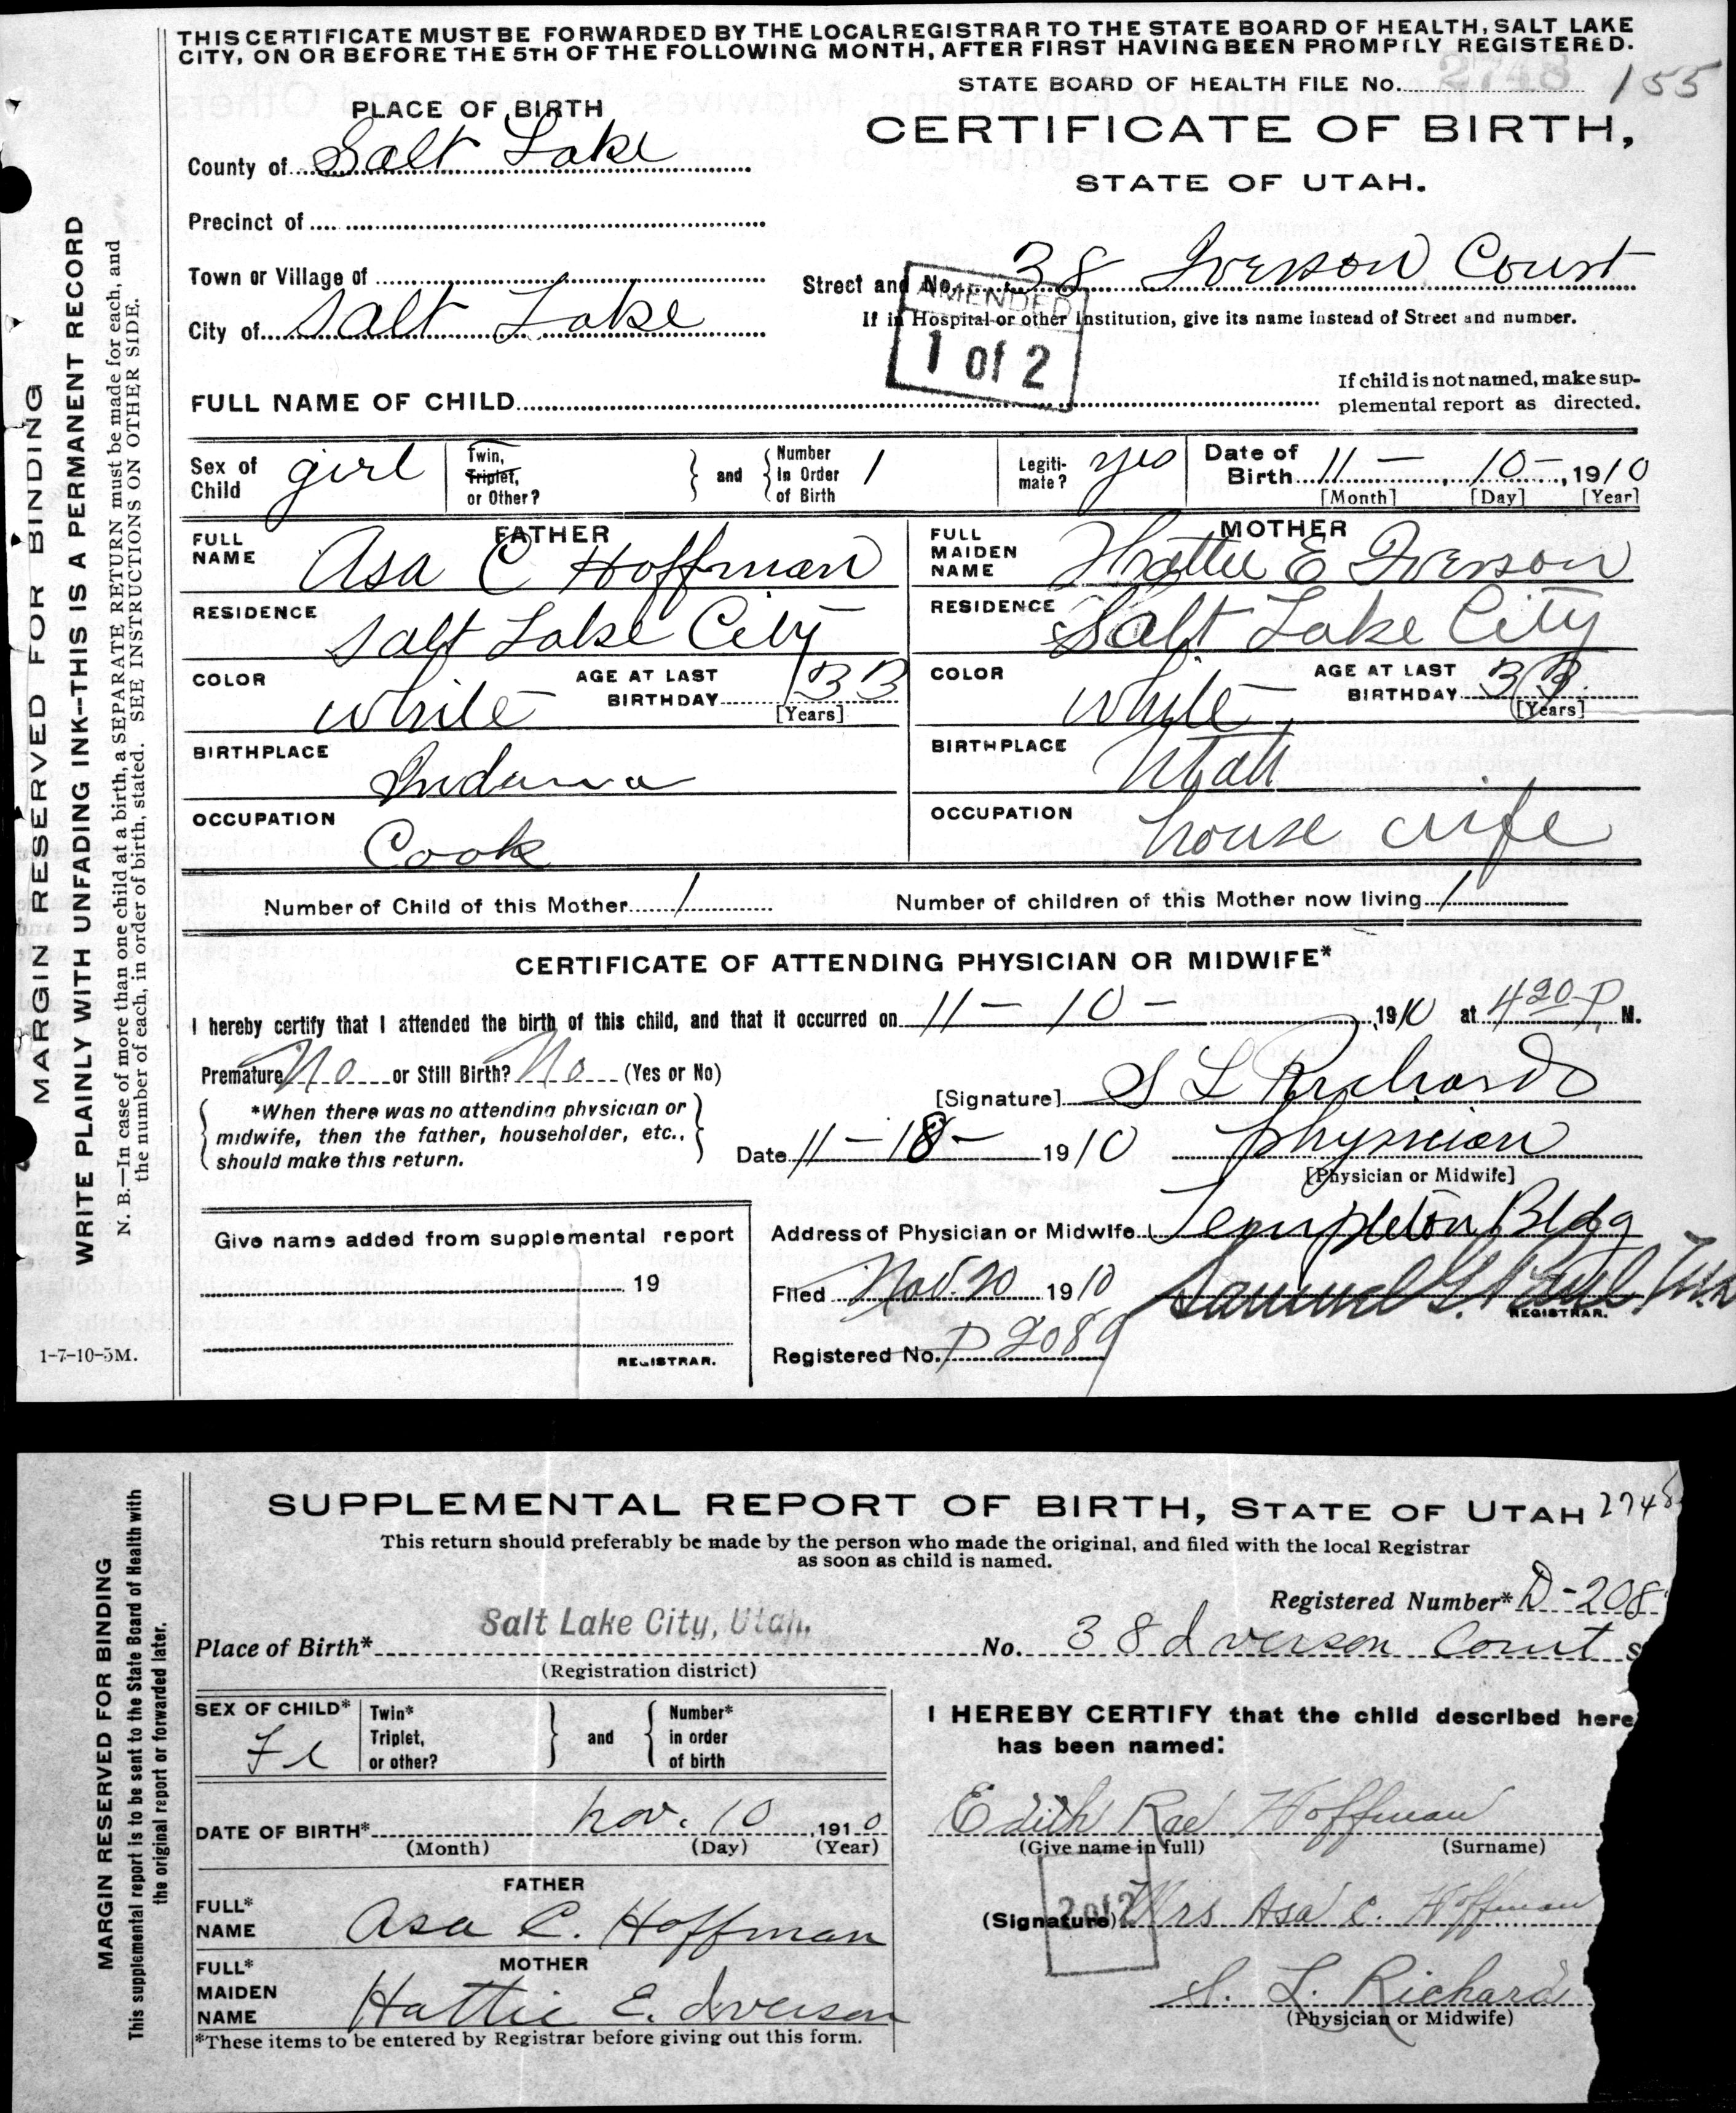 THIS CERTIFICATE MUST BE FORWARDED BY THE LOCAL REGISTRAR TO THE STATE BOARD OF HEALTH, SALT LAKE
CITY, ON OR BEFORE THE 5TH OF THE FOLLOWING MONTH, AFTER FIRST HAVING BEEN PROMPTLY REGISTERED.
STATE BOARD OF HEALTH FILE No. 2748 155
PLACE OF BIRTH
CERTIFICATE OF BIRTH,
STATE OF UTAH.
County of Salt Lake
Precinct of
Town or Village of
Street and No. 38 Iverson Court
City of Salt Lake
If in Hospital or other Institution, give its name instead of Street and number.
AMENDED
1 of 2
FULL NAME OF CHILD
If child is not named, make sup-
plemental report as directed.
Sex of Child girl
Twin, Triplet, or Other?
and
Number in Order of Birth 1
Legiti-mate? yes
Date of Birth 11 - 10 -, 1910
[Month] [Day] [Year]
FATHER
FULL NAME Asa C Hoffman
RESIDENCE Salt Lake City
COLOR White
AGE AT LAST BIRTHDAY 33
[Years]
BIRTHPLACE Indiana
OCCUPATION Cook
MOTHER
FULL MAIDEN NAME Hattie E Iverson
RESIDENCE Salt Lake City
COLOR White
AGE AT LAST BIRTHDAY 33
[Years]
BIRTHPLACE Utah
OCCUPATION house wife
Number of Child of this Mother 1
Number of children of this Mother now living 1
CERTIFICATE OF ATTENDING PHYSICIAN OR MIDWIFE*
I hereby certify that I attended the birth of this child, and that it occurred on 11 - 10 - 1910 at 4 20 P. M.
Premature No or Still Birth? No (Yes or No)
[Signature] S L Richards
*When there was no attending physician or
midwife, then the father, householder, etc.,
should make this return.
Date 11 - 18 - 1910 Physician
[Physician or Midwife]
Address of Physician or Midwife Templeton Bldg
Give name added from supplemental report
19
REGISTRAR.
Filed Nov. 20 1910 Samuel G. Paul
REGISTRAR.
Registered No. D 2089
1-7-10-5M.
MARGIN RESERVED FOR BINDING
WRITE PLAINLY WITH UNFADING INK--THIS IS A PERMANENT RECORD
N. B.—In case of more than one child at a birth, a SEPARATE RETURN must be made for each, and
the number of each, in order of birth, stated. SEE INSTRUCTIONS ON OTHER SIDE.
SUPPLEMENTAL REPORT OF BIRTH, STATE OF UTAH 2748
This return should preferably be made by the person who made the original, and filed with the local Registrar
as soon as child is named.
Registered Number* D-208
Place of Birth* Salt Lake City, Utah. No. 38 Iverson Court S
(Registration district)
SEX OF CHILD* Fe
Twin* Triplet, or other?
and
Number* in order of birth
DATE OF BIRTH* Nov. 10, 1910
(Month) (Day) (Year)
FATHER
FULL* NAME Asa C. Hoffman
MOTHER
FULL* MAIDEN NAME Hattie E. Iverson
*These items to be entered by Registrar before giving out this form.
I HEREBY CERTIFY that the child described here
has been named:
Edith Rae Hoffman
(Give name in full) (Surname)
2 of 2
(Signature) Mrs Asa C. Hoffman
S. L. Richard
(Physician or Midwife)
MARGIN RESERVED FOR BINDING
This supplemental report is to be sent to the State Board of Health with
the original report or forwarded later.